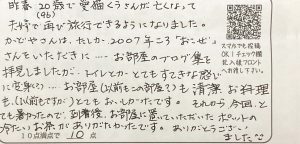 昨春、20歳で愛猫くうさんが亡くなって
(96)
夫婦で再び旅行できるようになりました。
かどやさんは、たしか2007年ごろ「おこぜ」
さんをいただきに……お部屋のブログ集を
拝見しましたが、トイレとか、とてもすてきな感じに
……お部屋(以前もこの部屋?)も清潔、お料理
も(以前もですが)とてもおいしかったです。それから今回、と
ても暑かったので、到着後、お部屋に置いていただいたポットの
冷たいお茶がありがたかったです。ありがとうござい
10点満点で 10 点
ました
スマホでも投稿
OK!チェック欄
記入後フロント
へお渡し下さい。